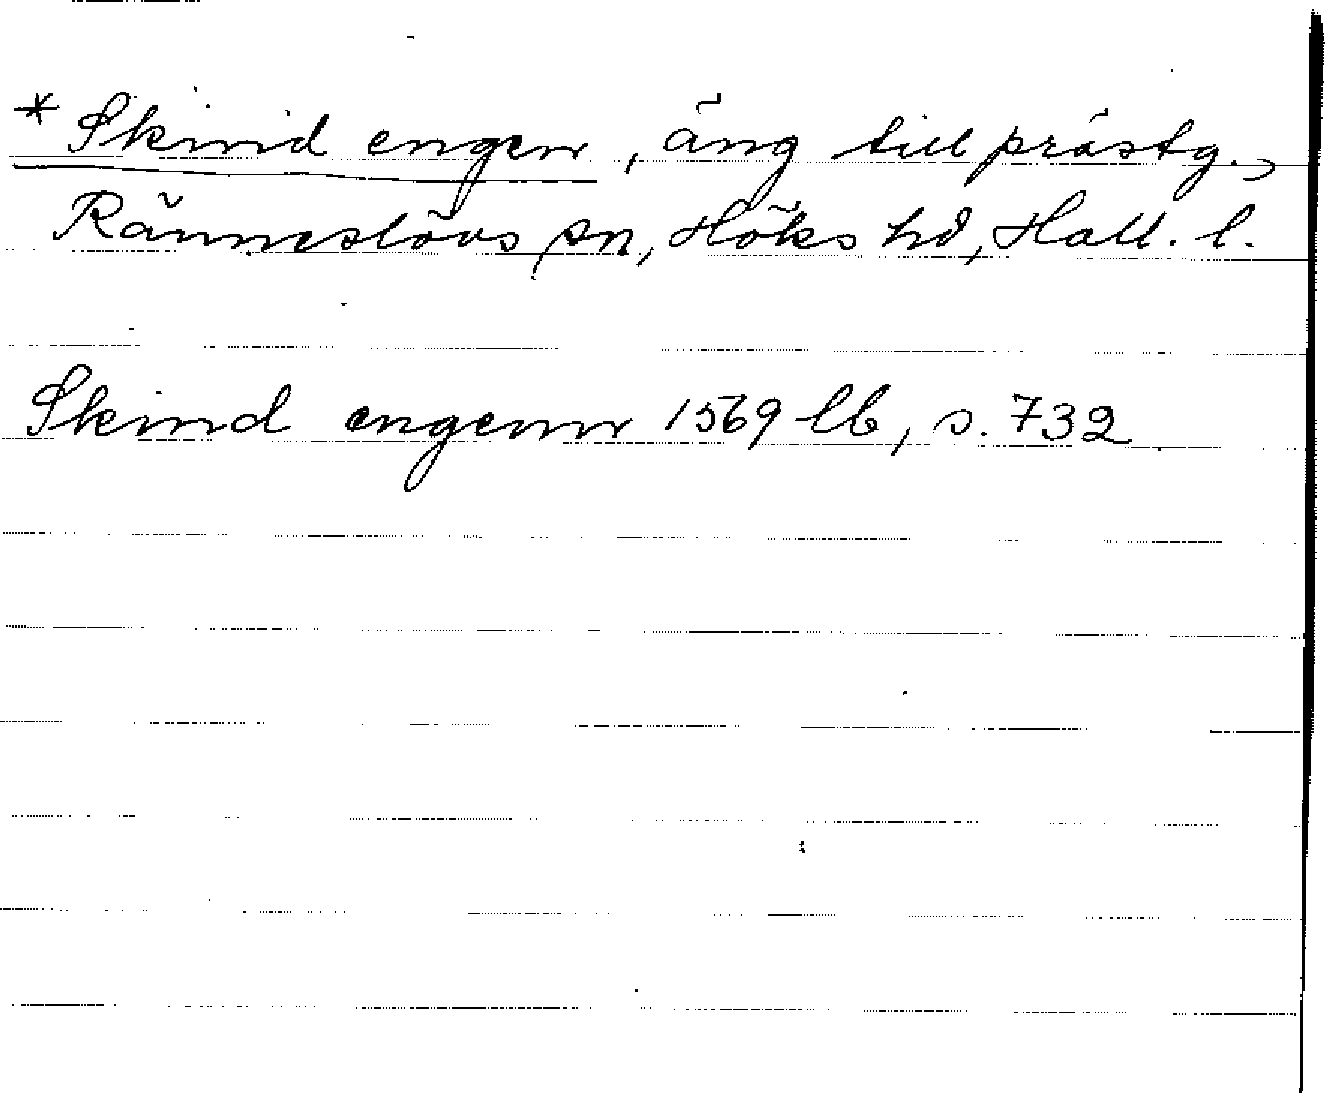 * Skind engen, äng till prästg.,
Ränneslövs sn, Höks hd, Hall. l.
Skind engenn 1569 lb, s. 732